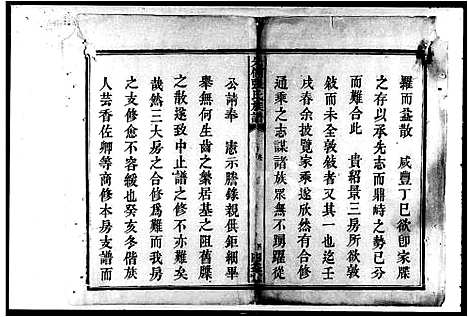 羅而益散　咸豐丁巳欲卽家牒
之存以承先志而鼎峙之勢已分
而難合此　貴紹景三房所欲敦
敘而未全敦敘者一也迄壬
戌春余披覽家乘遂欣然有合修
通乘之志謀諸族眾無不踴躍從
公請奉　憲示謄錄親供鉅細畢
舉無何生齒之繁居基之阻舊牒
之散遂致中止譜之修不亦難矣
哉然三大房之合修為難而一房
之支修愈不容緩也癸亥冬偕族
人芸香佐卿等商修本房支譜而